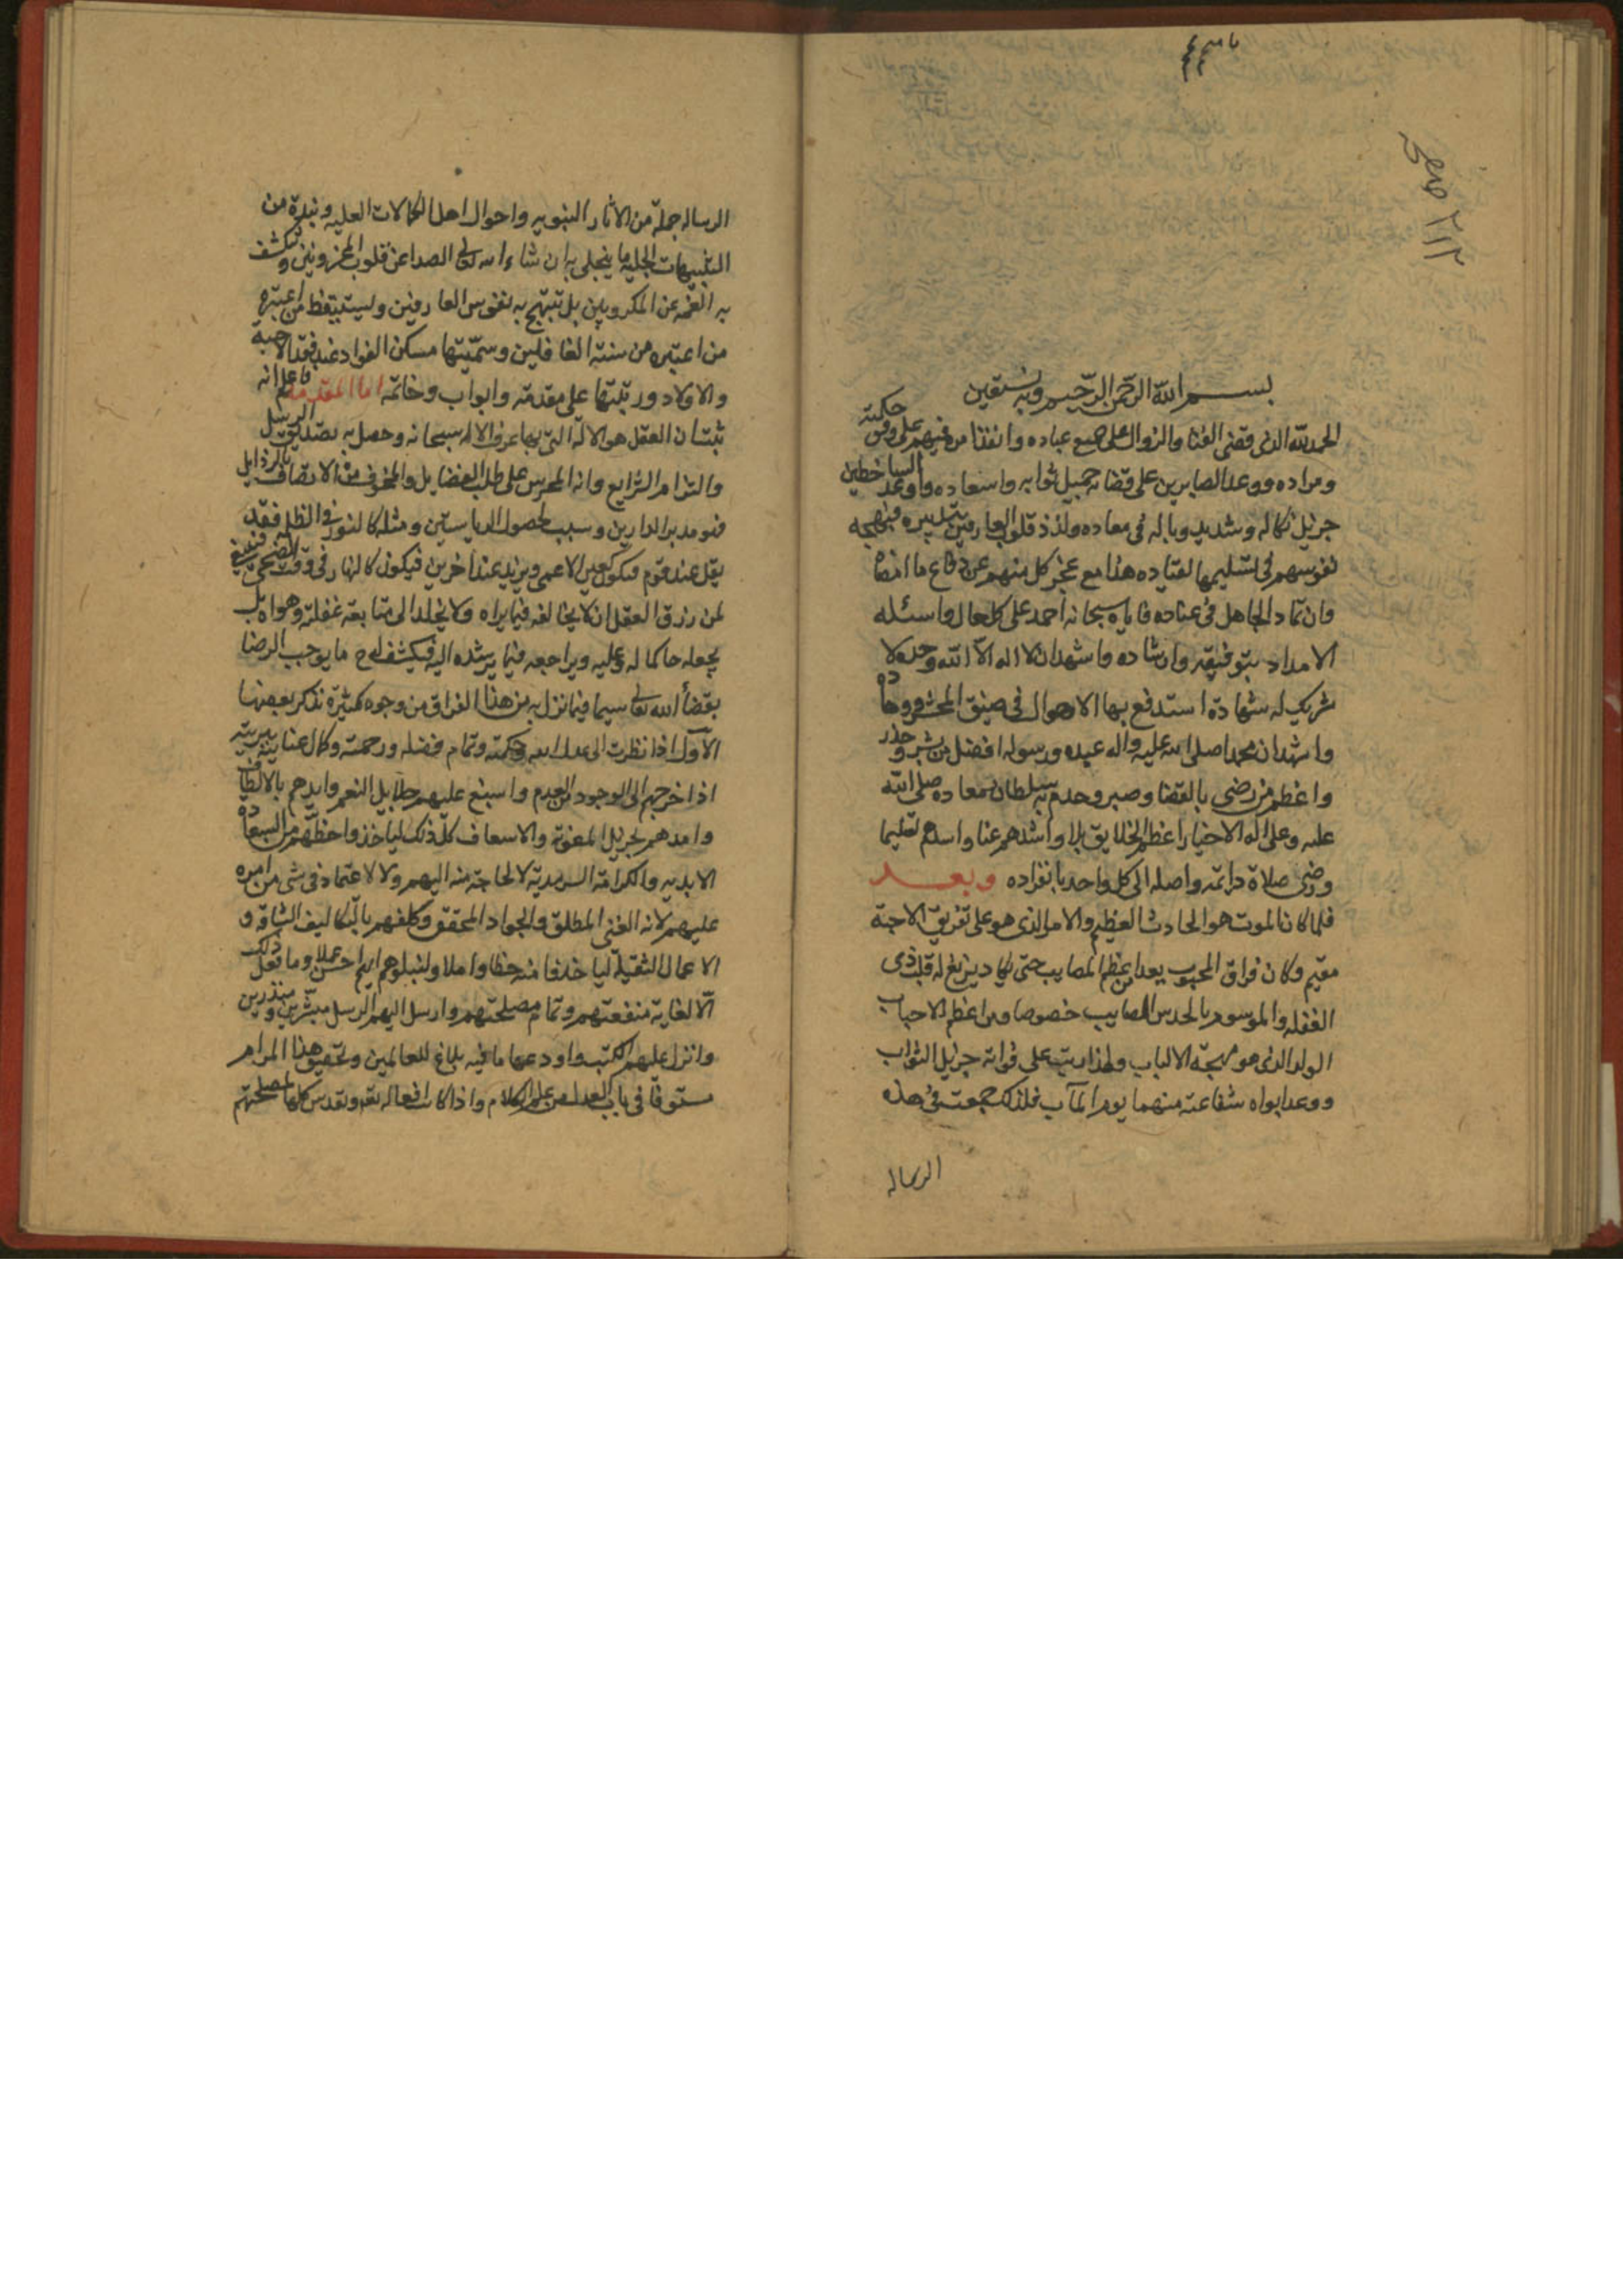 بسم الله الرحمن الرحيم وبه نستعين
الحمد لله الذى قضى الفنا والزوال على جميع عباده وانفذ امره فيهم على وفق حكمته
ومراده ووعد الصابرين على قضائه جميل ثوابه واسعاده واوعد الساخطين
جزيل نكاله وشديد وباله فى معاده ولذذ قلوب العارفين بتدبيره فبهجة
نفوسهم فى تسليمها لقياده هذا مع عجز كل منهم عن دفاع ما امضاه
وان تماد الجاهل فى عناده فاياه سبحانه احمد على كل حال واسئله
الامداد بتوفيقه وارشاده واشهد ان لا اله الا الله وحده لا
شريك له شهادة استدفع بها الاهوال فى ضيق المحشر ووهاده
واشهد ان محمدا صلى الله عليه واله عبده ورسوله افضل من بشر وحذر
واعظم من رضى بالقضا وصبر وحدم به سلطان معاده صلى الله
عليه وعلى اله الاخيار اعظم الخلايق بلا واشدهم عنا واسدهم تسليما
ورضى صلاة دائمة واصلة الى كل واحد بانفراده وبعد
فلما كان الموت هو الحادث العظيم والامر الذى هو على تفريق الاحبة
مقيم وكان فراق المحبوب يعد من اعظم المصايب حتى يكاد يزيغ له قلب ذى
الغفله والموسوم بالحدس الصايب خصوصا ومن اعظم الاحباب
الولد الذى هو مهجة الالباب ولهذا رتب على فراقه جزيل الثواب
ووعد ابواه شفاعته فيهما يوم المآب فلذلك جمعت فى هذه
الرساله
الرساله جملة من الاثار النبويه واحوال اهل الكمالات العليه ونبذة من
التنبيهات الجليه ما ينجلى به ان شاء الله تعالى الصدا عن قلوب المحزونين وتنكشف
به الغمه عن المكروبين بل تبتهج به نفوس العارفين ويستيقظ من اعتبره
من اعتبره من سنة الغافلين وسميتها مسكن الفواد عند فقد الاحبه
والاولاد ورتبتها على مقدمة وابواب وخاتمه اما المقدمه فاعلم انه
ثبت ان العقل هو الالة التى بها عرف الاله سبحانه وحصل به تصديق الرسل
والتزام الشرايع وانه المحرض على طلب الفضايل والمخوف من الاتصاف بالرذايل
فهو مدبر الدارين وسبب لحصول الرياستين ومثله كالنور فى الظلمه فقد
يقل عند قوم فيكون كعين الاعمى ويزيد عند اخرين فيكون كالنهار فى وقت الضحى فينبغى
لمن رزق العقل ان لا يخالفه فيما يراه ولا يخلد الى متابعة غفلته وهواه بل
يجعله حاكما له وعليه ويراجعه فيما يرشده اليه فيكشف له ح ما يوجب الرضا
بقضأ الله تعالى سيما فيما نزل به من هذا الفراق من وجوه كثيرة نذكر بعضها
الاول اذا نظرت الى عدل الله وحكمته وتمام فضله ورحمته وكمال عنايته ببريته
اذ اخرجهم الى الوجود من العدم واسبغ عليهم جلايل النعم وايدهم بالالطاف
وامدهم بجزيل المعونة والاسعاف كل ذلك لياخذوا حظهم من السعادة
الابديه والكرامة السرمدية لا لحاجة منه اليهم ولا لاعتماد فى شى من امره
عليهم لانه الغنى المطلق والجواد المحقق وكلفهم بالتكاليف الشاقه و
الاعمال الثقيلة لياخذوا منه حظا واملا وليبلوهم ايهم احسن عملا وما فعل ذلك
الا لغاية منفعتهم وتمام مصلحتهم وارسل اليهم الرسل مبشرين ومنذرين
وانزل عليهم الكتب واودعها ما فيه بلاغ للعالمين وتحقيق هذا المرام
مستوفا فى باب العدل من علم الكلام واذا كانت افعاله تعه وتقدس كلها لمصلحتهم